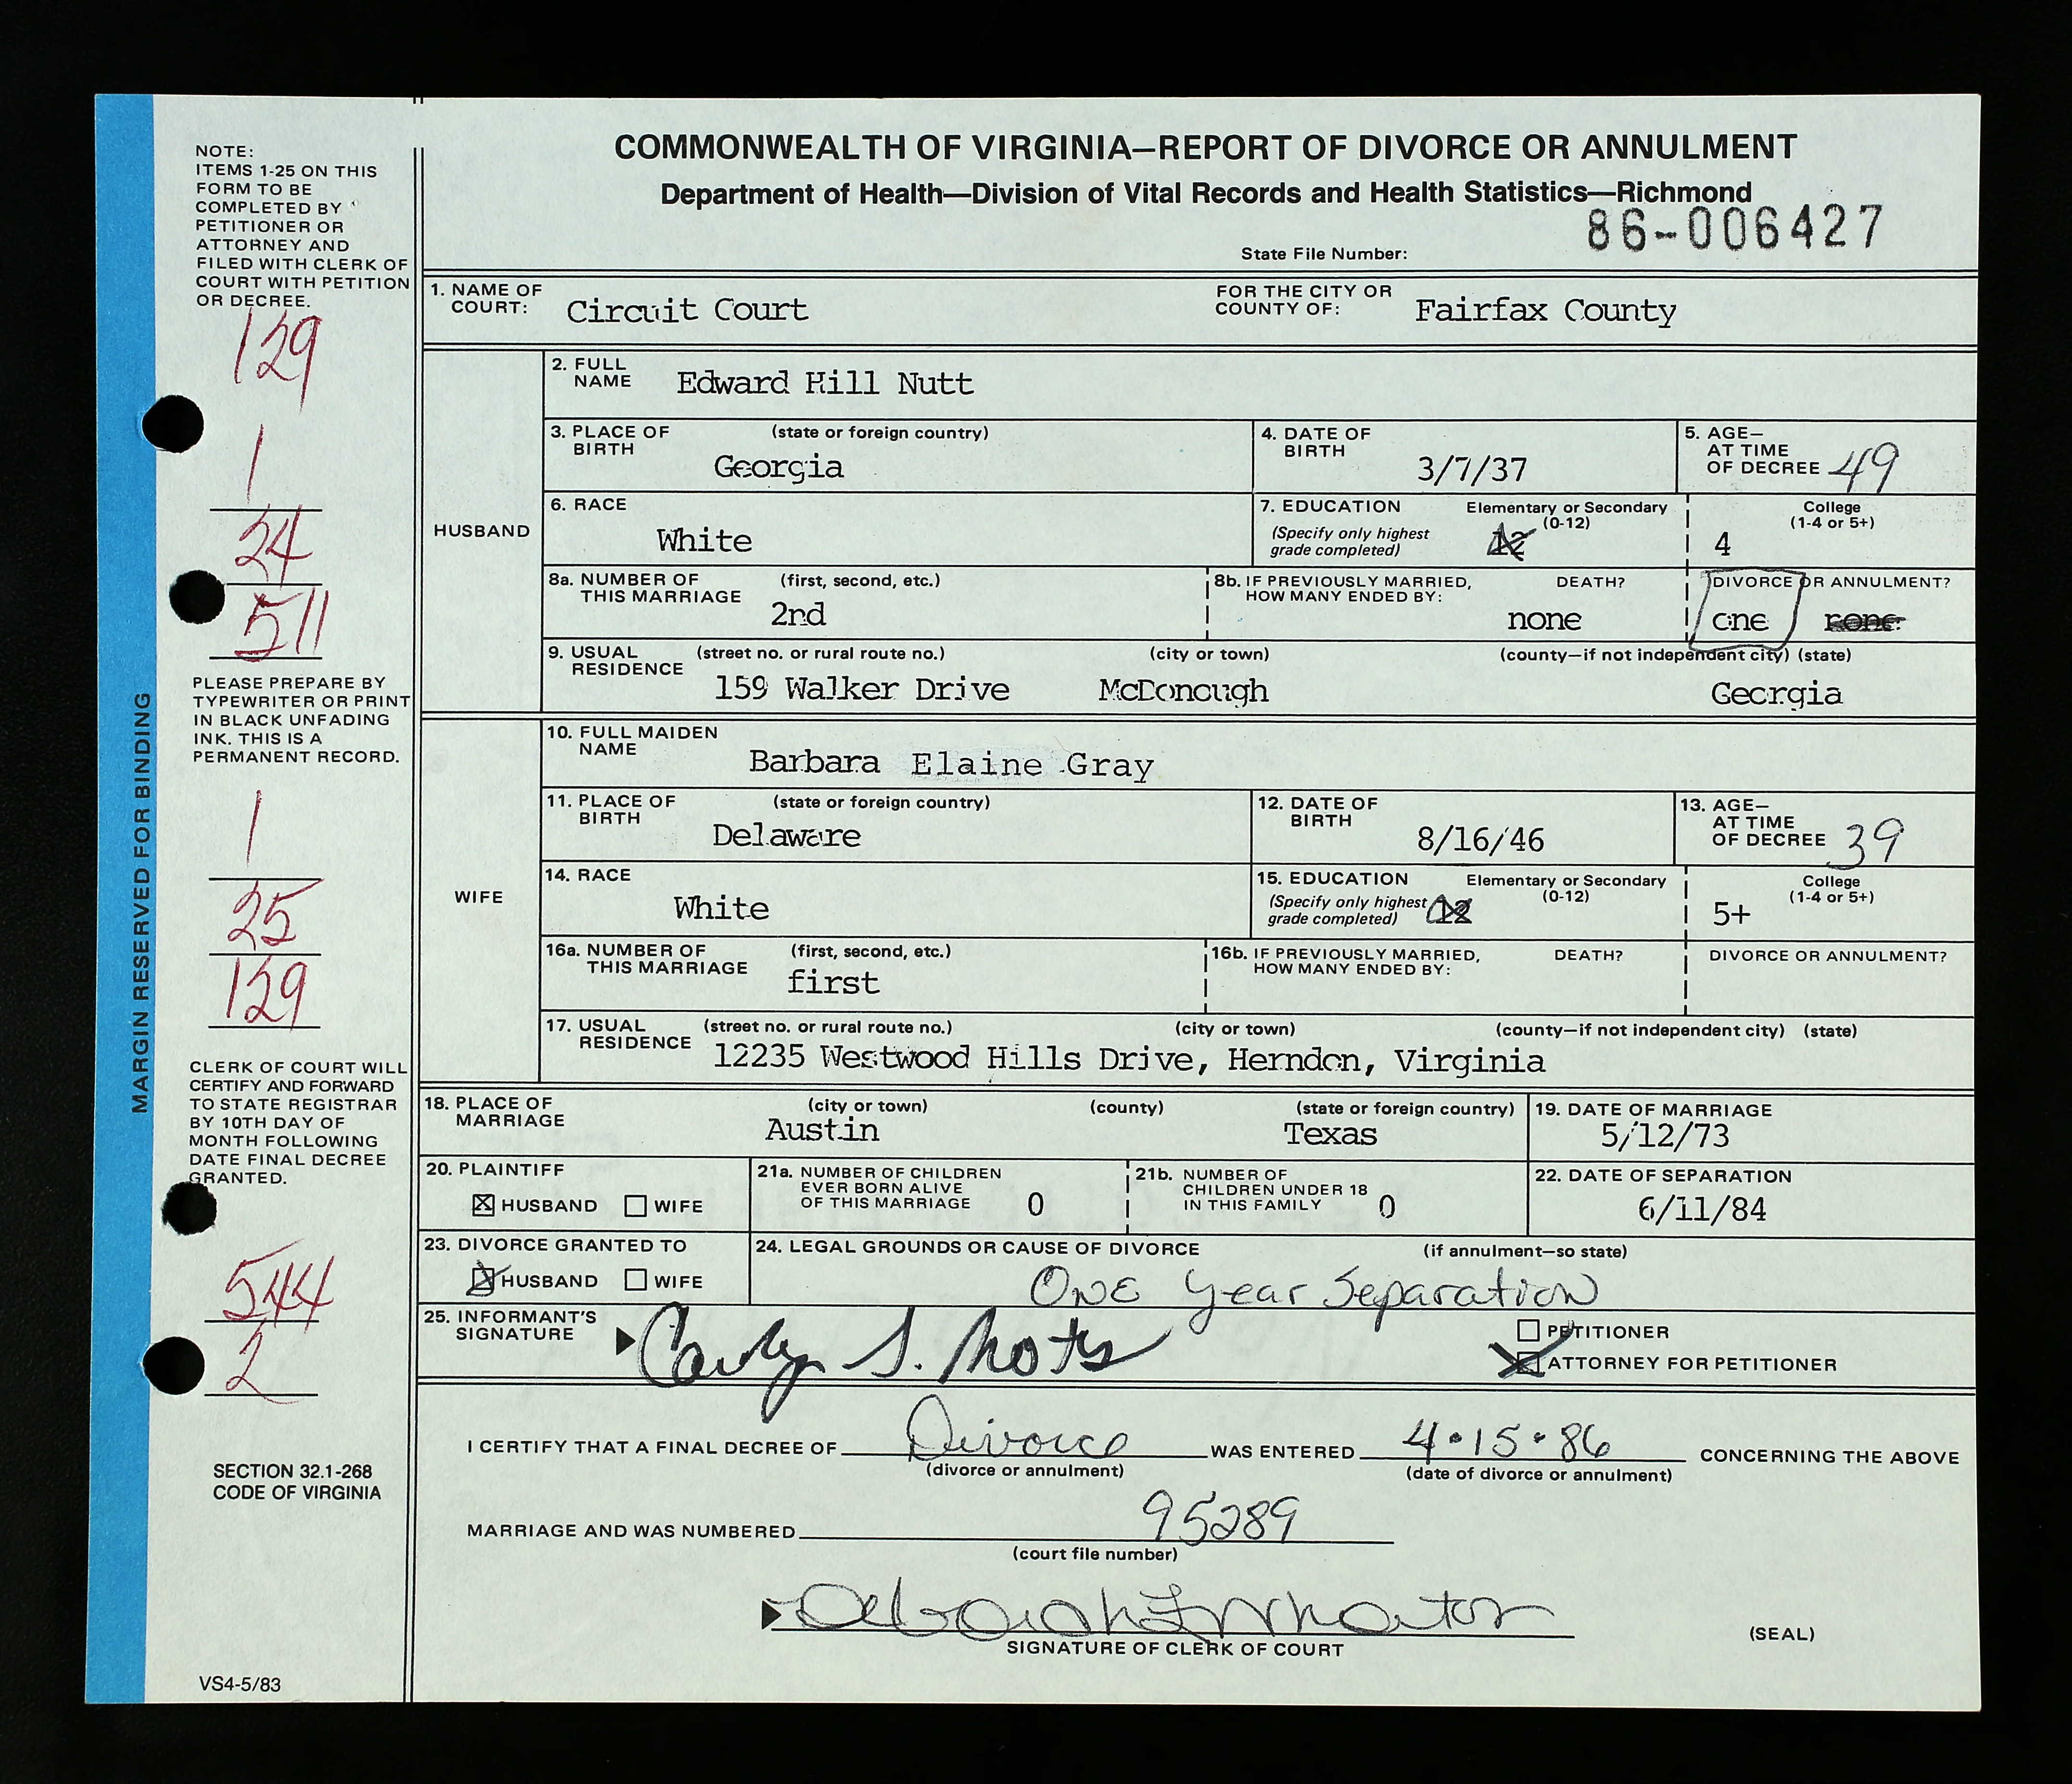 COMMONWEALTH OF VIRGINIA—REPORT OF DIVORCE OR ANNULMENT
Department of Health—Division of Vital Records and Health Statistics—Richmond
State File Number: 86-006427
NOTE:
ITEMS 1-25 ON THIS
FORM TO BE
COMPLETED BY
PETITIONER OR
ATTORNEY AND
FILED WITH CLERK OF
COURT WITH PETITION
OR DECREE.
129
1
24
511
PLEASE PREPARE BY
TYPEWRITER OR PRINT
IN BLACK UNFADING
INK. THIS IS A
PERMANENT RECORD.
1
25
129
CLERK OF COURT WILL
CERTIFY AND FORWARD
TO STATE REGISTRAR
BY 10TH DAY OF
MONTH FOLLOWING
DATE FINAL DECREE
GRANTED.
544
2
SECTION 32.1-268
CODE OF VIRGINIA
VS4-5/83
MARGIN RESERVED FOR BINDING
1. NAME OF COURT: Circuit Court FOR THE CITY OR COUNTY OF: Fairfax County
HUSBAND
2. FULL NAME Edward Hill Nutt
3. PLACE OF BIRTH (state or foreign country) Georgia
4. DATE OF BIRTH 3/7/37
5. AGE— AT TIME OF DECREE 49
6. RACE White
7. EDUCATION (Specify only highest grade completed) Elementary or Secondary (0-12) 12 College (1-4 or 5+) 4
8a. NUMBER OF THIS MARRIAGE (first, second, etc.) 2nd
8b. IF PREVIOUSLY MARRIED, HOW MANY ENDED BY: DEATH? none DIVORCE OR ANNULMENT? one none
9. USUAL RESIDENCE (street no. or rural route no.) (city or town) (county—if not independent city) (state)
159 Walker Drive McDonough Georgia
WIFE
10. FULL MAIDEN NAME Barbara Elaine Gray
11. PLACE OF BIRTH (state or foreign country) Delaware
12. DATE OF BIRTH 8/16/46
13. AGE— AT TIME OF DECREE 39
14. RACE White
15. EDUCATION (Specify only highest grade completed) Elementary or Secondary (0-12) 12 College (1-4 or 5+) 5+
16a. NUMBER OF THIS MARRIAGE (first, second, etc.) first
16b. IF PREVIOUSLY MARRIED, HOW MANY ENDED BY: DEATH? DIVORCE OR ANNULMENT?
17. USUAL RESIDENCE (street no. or rural route no.) (city or town) (county—if not independent city) (state)
12235 Westwood Hills Drive, Herndon, Virginia
18. PLACE OF MARRIAGE (city or town) (county) (state or foreign country)
Austin Texas
19. DATE OF MARRIAGE 5/12/73
20. PLAINTIFF HUSBAND WIFE
21a. NUMBER OF CHILDREN EVER BORN ALIVE OF THIS MARRIAGE 0
21b. NUMBER OF CHILDREN UNDER 18 IN THIS FAMILY 0
22. DATE OF SEPARATION 6/11/84
23. DIVORCE GRANTED TO HUSBAND WIFE
24. LEGAL GROUNDS OR CAUSE OF DIVORCE (if annulment—so state)
One Year Separation
25. INFORMANT'S SIGNATURE
PETITIONER
ATTORNEY FOR PETITIONER
I CERTIFY THAT A FINAL DECREE OF Divorce WAS ENTERED 4•15•86 CONCERNING THE ABOVE
(divorce or annulment) (date of divorce or annulment)
MARRIAGE AND WAS NUMBERED 95289
(court file number)
SIGNATURE OF CLERK OF COURT
(SEAL)